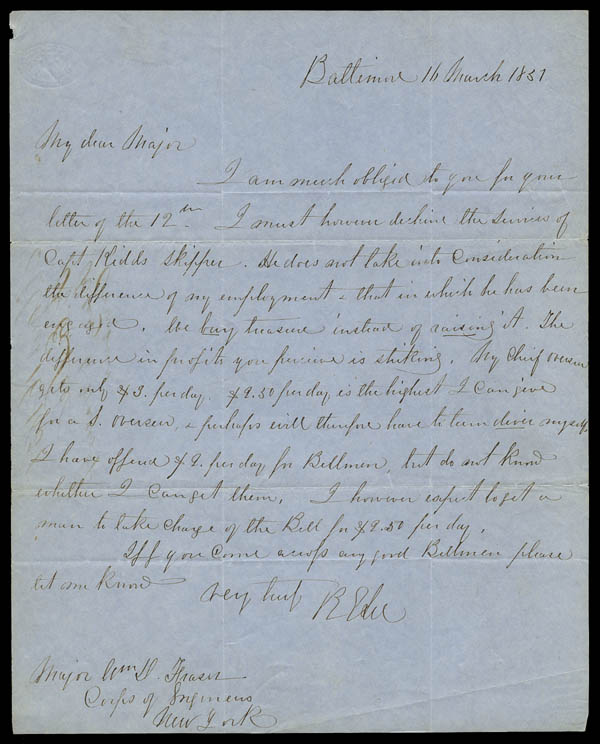 Baltimore 16 March 1851
My dear Major
I am much obliged to you for your
letter of the 12th. I must however decline the services of
Capt Kidds skipper. He does not take into Consideration
the difference of my employment & that in which he has been
engaged. We bury treasure instead of raising it. The
difference in profits you perceive is striking. My Chief overseer
gets only $3. per day. $2.50 per day is the highest I can give
for a S. overseer, & perhaps will therefore have to turn diver myself
I have offered $2. per day for Bellmen, but do not know
whether I can get them. I however expect to get a
man to take charge of the Bell for $2.50 per day.
Iff you come across any good Bellmen please
let me know
very truly
R E Lee
Major Wm D. Fraser
Corps of Engineers
New York